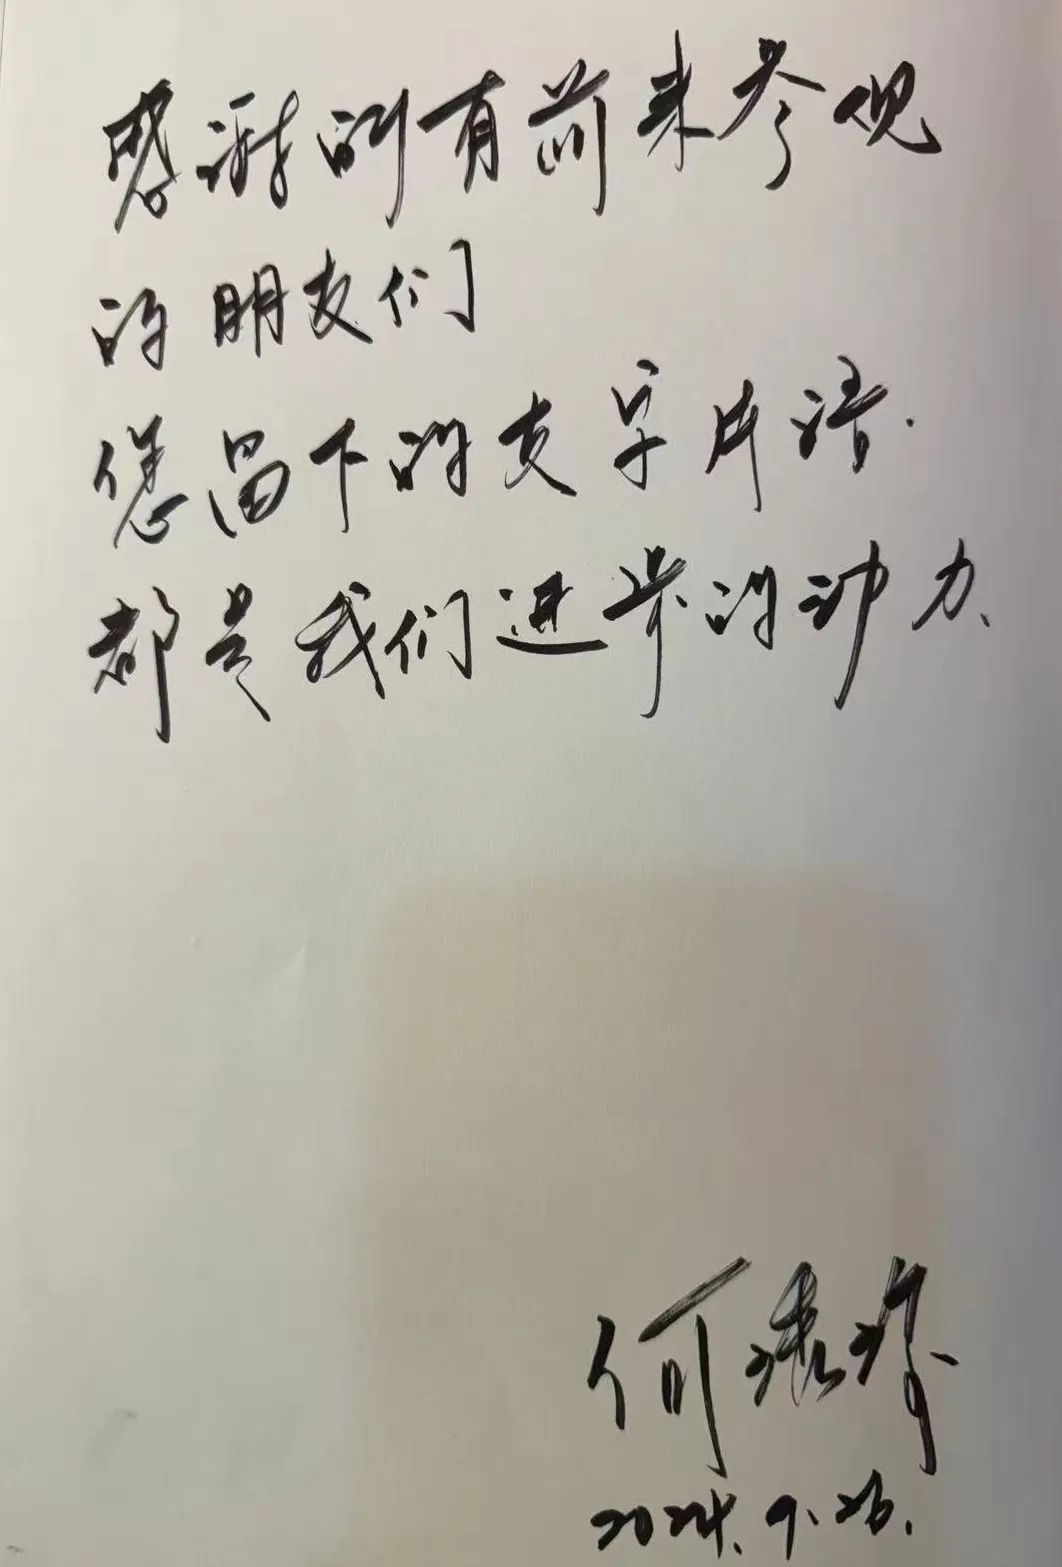 感谢所有前来参观
的朋友们
您留下的文字片语.
都是我们进步的动力、
何
2024.9.26.